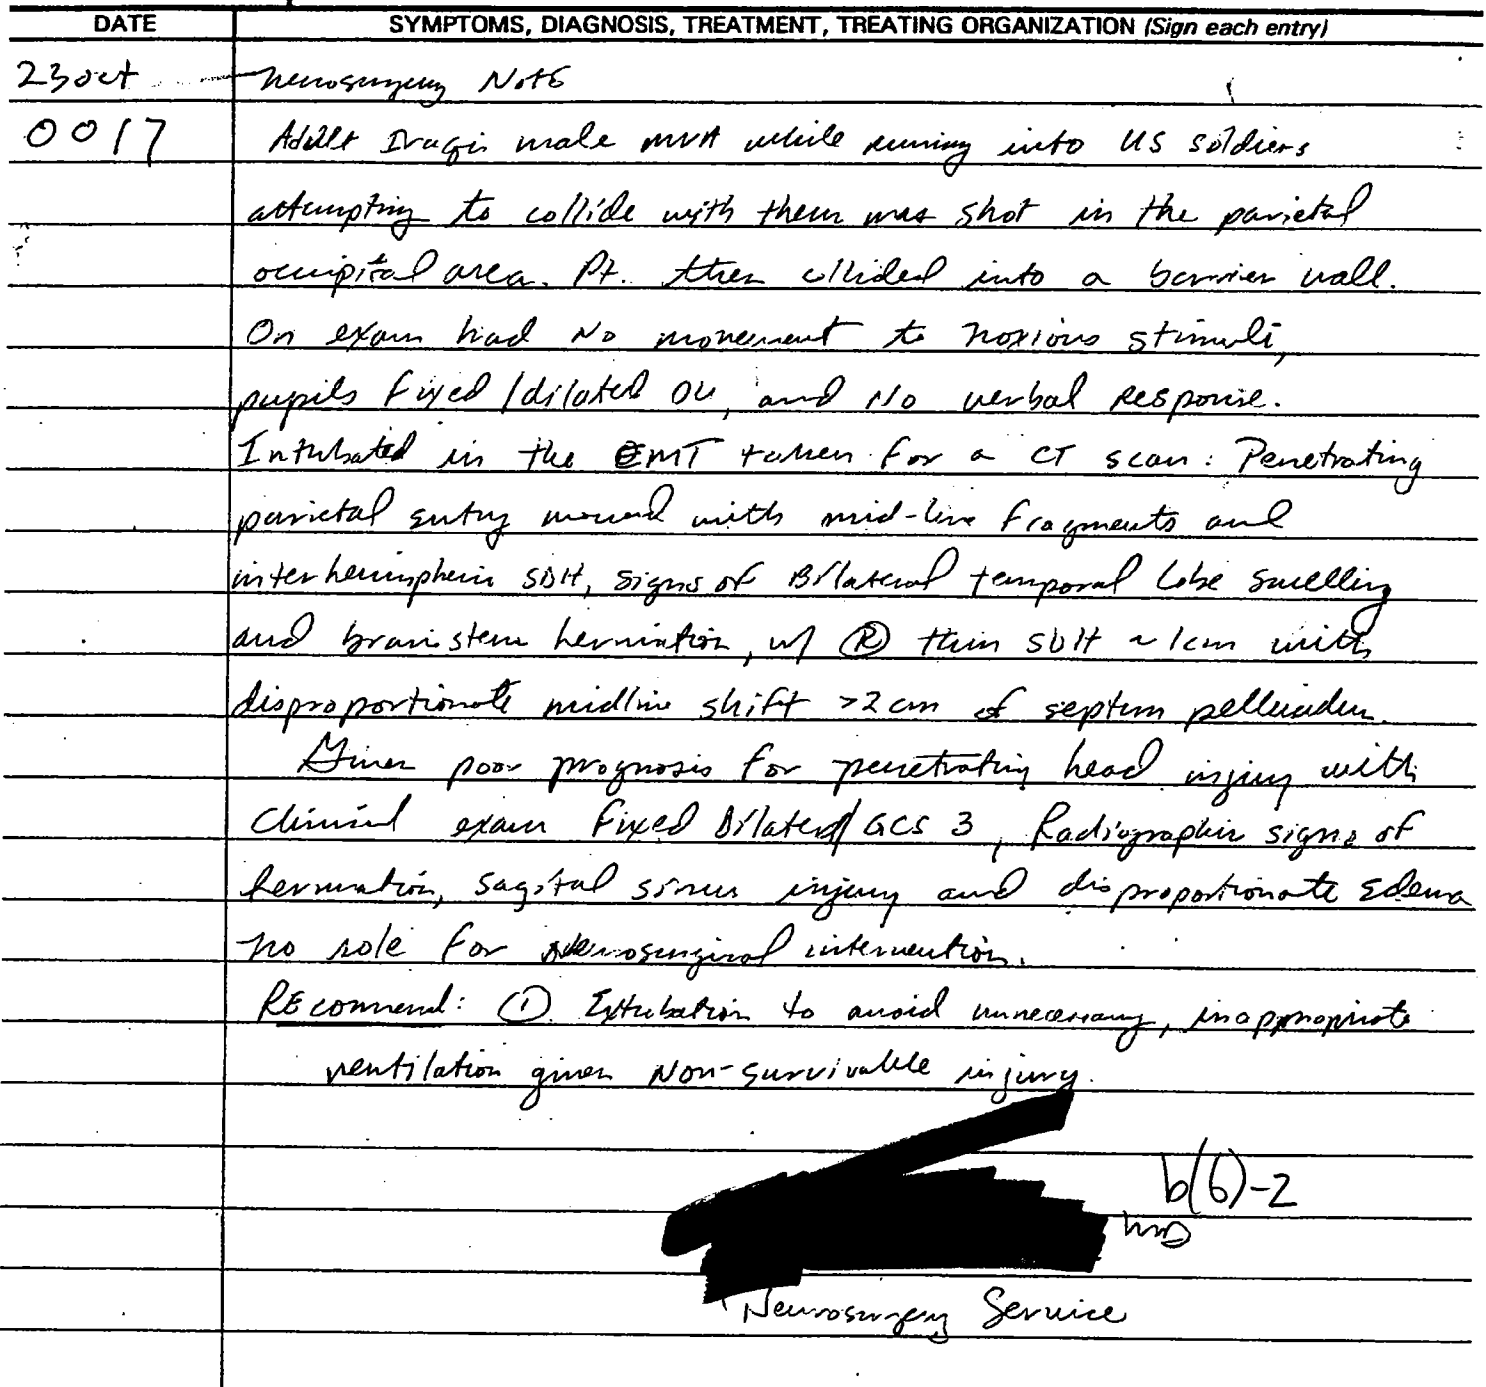 DATE SYMPTOMS, DIAGNOSIS, TREATMENT, TREATING ORGANIZATION (Sign each entry)
23 oct Neurosurgery Note
0017 Adult Iraqi male MVA while running into US soldiers
attempting to collide with them was shot in the parietal
occipital area. Pt. then collided into a barrier wall.
On exam had No movement to noxious stimuli,
pupils fixed/dilated OU, and No verbal Response.
Intubated in the EMT taken for a CT scan: Penetrating
parietal entry wound with mid-line fragments and
interhemispheric SDH, signs of Bilateral temporal lobe swelling
and brainstem herniation, w/ Ⓡ thin SDH ~ 1cm with
disproportionate midline shift >2 cm of septum pellucidum.
Given poor prognosis for penetrating head injury with
Clinical exam Fixed Dilated/GCS 3, Radiographic signs of
herniation, sagital sinus injury and disproportionate Edema
no role for Neurosurgical intervention.
REcommend: ① Extubation to avoid unnecessary, inappropriate
ventilation given Non-survivable injury.
b(6)-2
MD
Neurosurgery Service